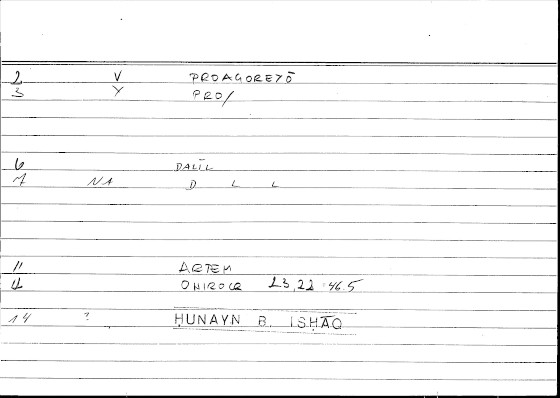 2 V PROAGOREYŌ
3 Y PRO/
6 DALĪL
7 NA D L L
11 ARTEM
4 ONIROCR 23,22 : 46.5
14 ? ḤUNAYN B. ISḤĀQ